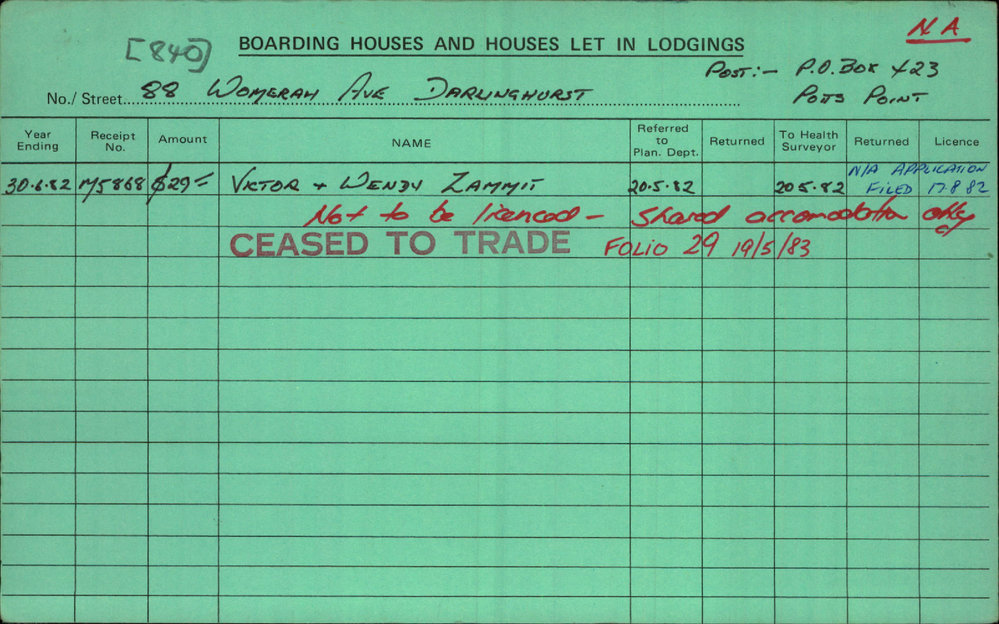 N A
[840] BOARDING HOUSES AND HOUSES LET IN LODGINGS
Post:- P.O. Box 423
No./Street... 88 Womerah Ave Darlinghurst
Potts Point
Year Ending Receipt No. Amount NAME Referred to Plan. Dept. Returned To Health Surveyor Returned Licence
30.6.82 M5868 $29= Victor + Wendy Zammit 20.5.82 20.5.82 N/A APPLICATION FILED 17.8.82
Not to be licenced - shared accomodation only
CEASED TO TRADE FOLIO 29 19/5/83